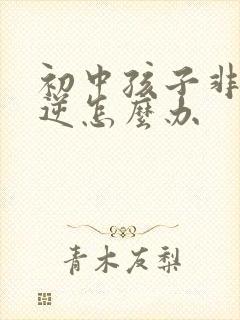 初中孩子非
逆怎麼办
青木友梨